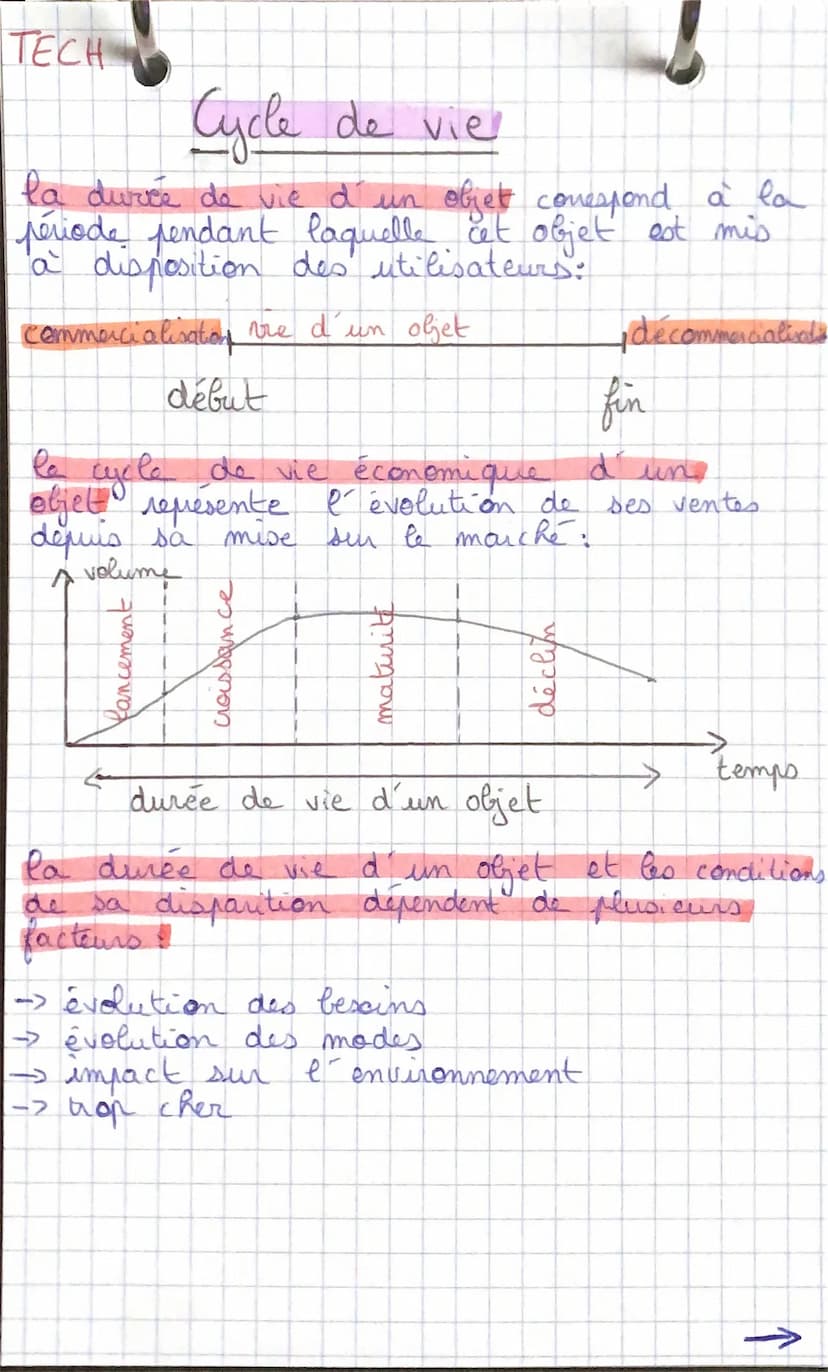 TECH
Cycle de vie
la durée de vie d'un objet correspond à la
période pendant laquelle cet objet est mis
à disposition des utilisateurs:
commercialisation vie d'un objet décommercialisation
début fin
le cycle de vie économique d'un
objet représente l'évolution de ses ventes
depuis sa mise sur le marché:
volume
lancement croissance maturité déclin
temps
durée de vie d'un objet
la durée de vie d'un objet et les conditions
de sa disparition dépendent de plusieurs
facteurs:
-> évolution des besoins
-> évolution des modes
-> impact sur l'environnement
-> trop cher
→